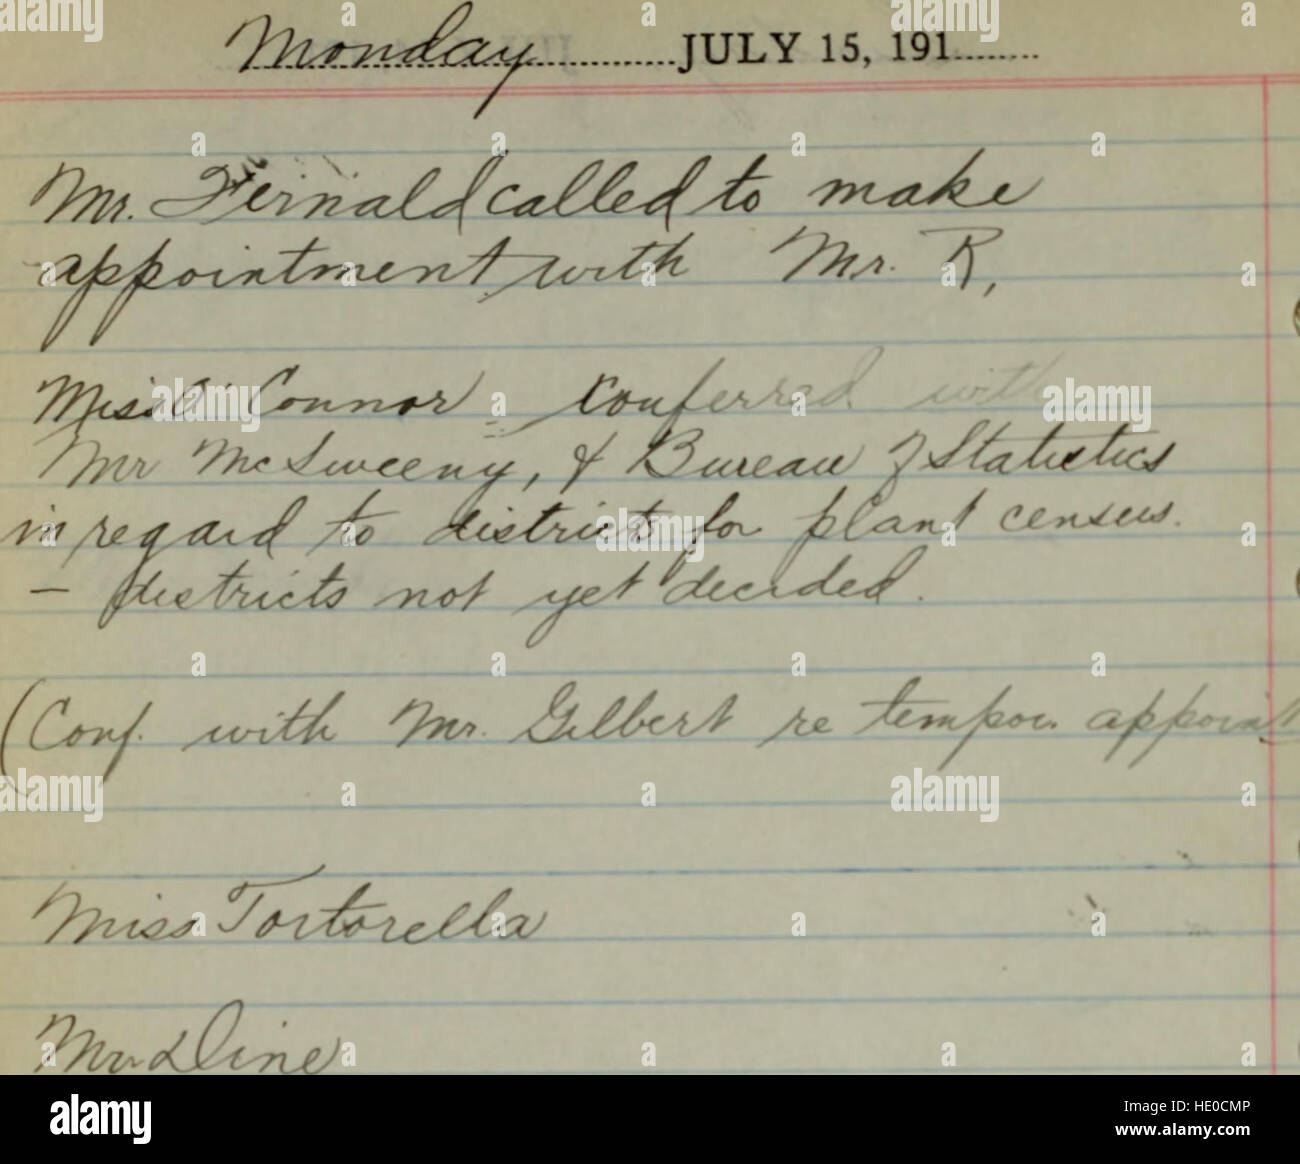 Monday JULY 15, 191
Mr. Fernald called to make
appointment with Mr. R,
Miss O'Connor conferred with
Mr McSweeny, & Bureau of Statistics
in regard to districts for plant census.
– districts not yet decided.
(Conf. with Mr. Gilbert re tempor. appoint
Miss Tortorella
Dine
alamy
Image ID: HE0CMP
www.alamy.com